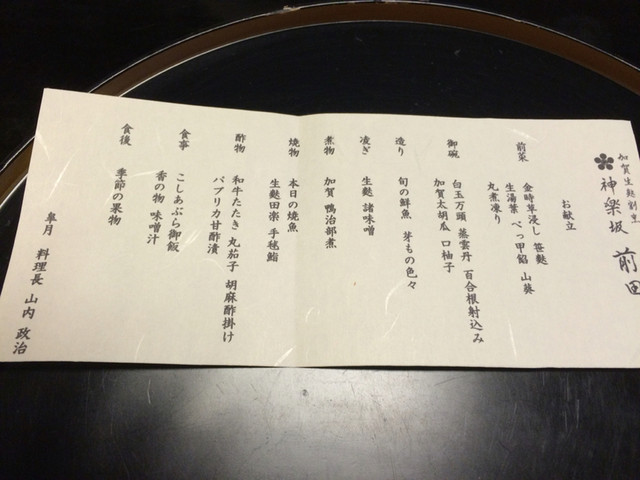 加賀生麩割烹
神楽坂 前田
お献立
前菜 金時草浸し 笹麩
生湯葉 べっ甲餡 山葵
丸煮凍り
御碗 白玉万頭 蒸雲丹 百合根射込み
加賀太胡瓜 口柚子
造り 旬の鮮魚 芽もの色々
凌ぎ 生麩 諸味噌
煮物 加賀 鴨治部煮
焼物 本日の焼魚
生麩田楽 手毬鮨
酢物 和牛たたき 丸茄子 胡麻酢掛け
パプリカ甘酢漬
食事 こしあぶら御飯
香の物 味噌汁
食後 季節の果物
皐月 料理長 山内 政治